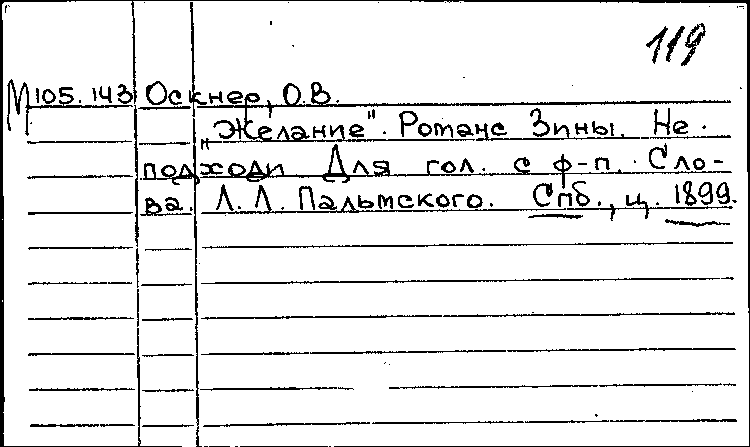 119
М 105.143 Оскнер, О.В.
„Желание". Романс Зины. Не
подходи Для гол. с ф-п. Сло-
ва. Л.Л. Пальмского. Спб., ц. 1899.